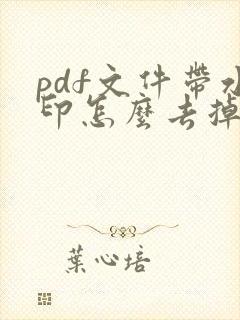 pdf文件帶水
印怎麼去掉
葉心培